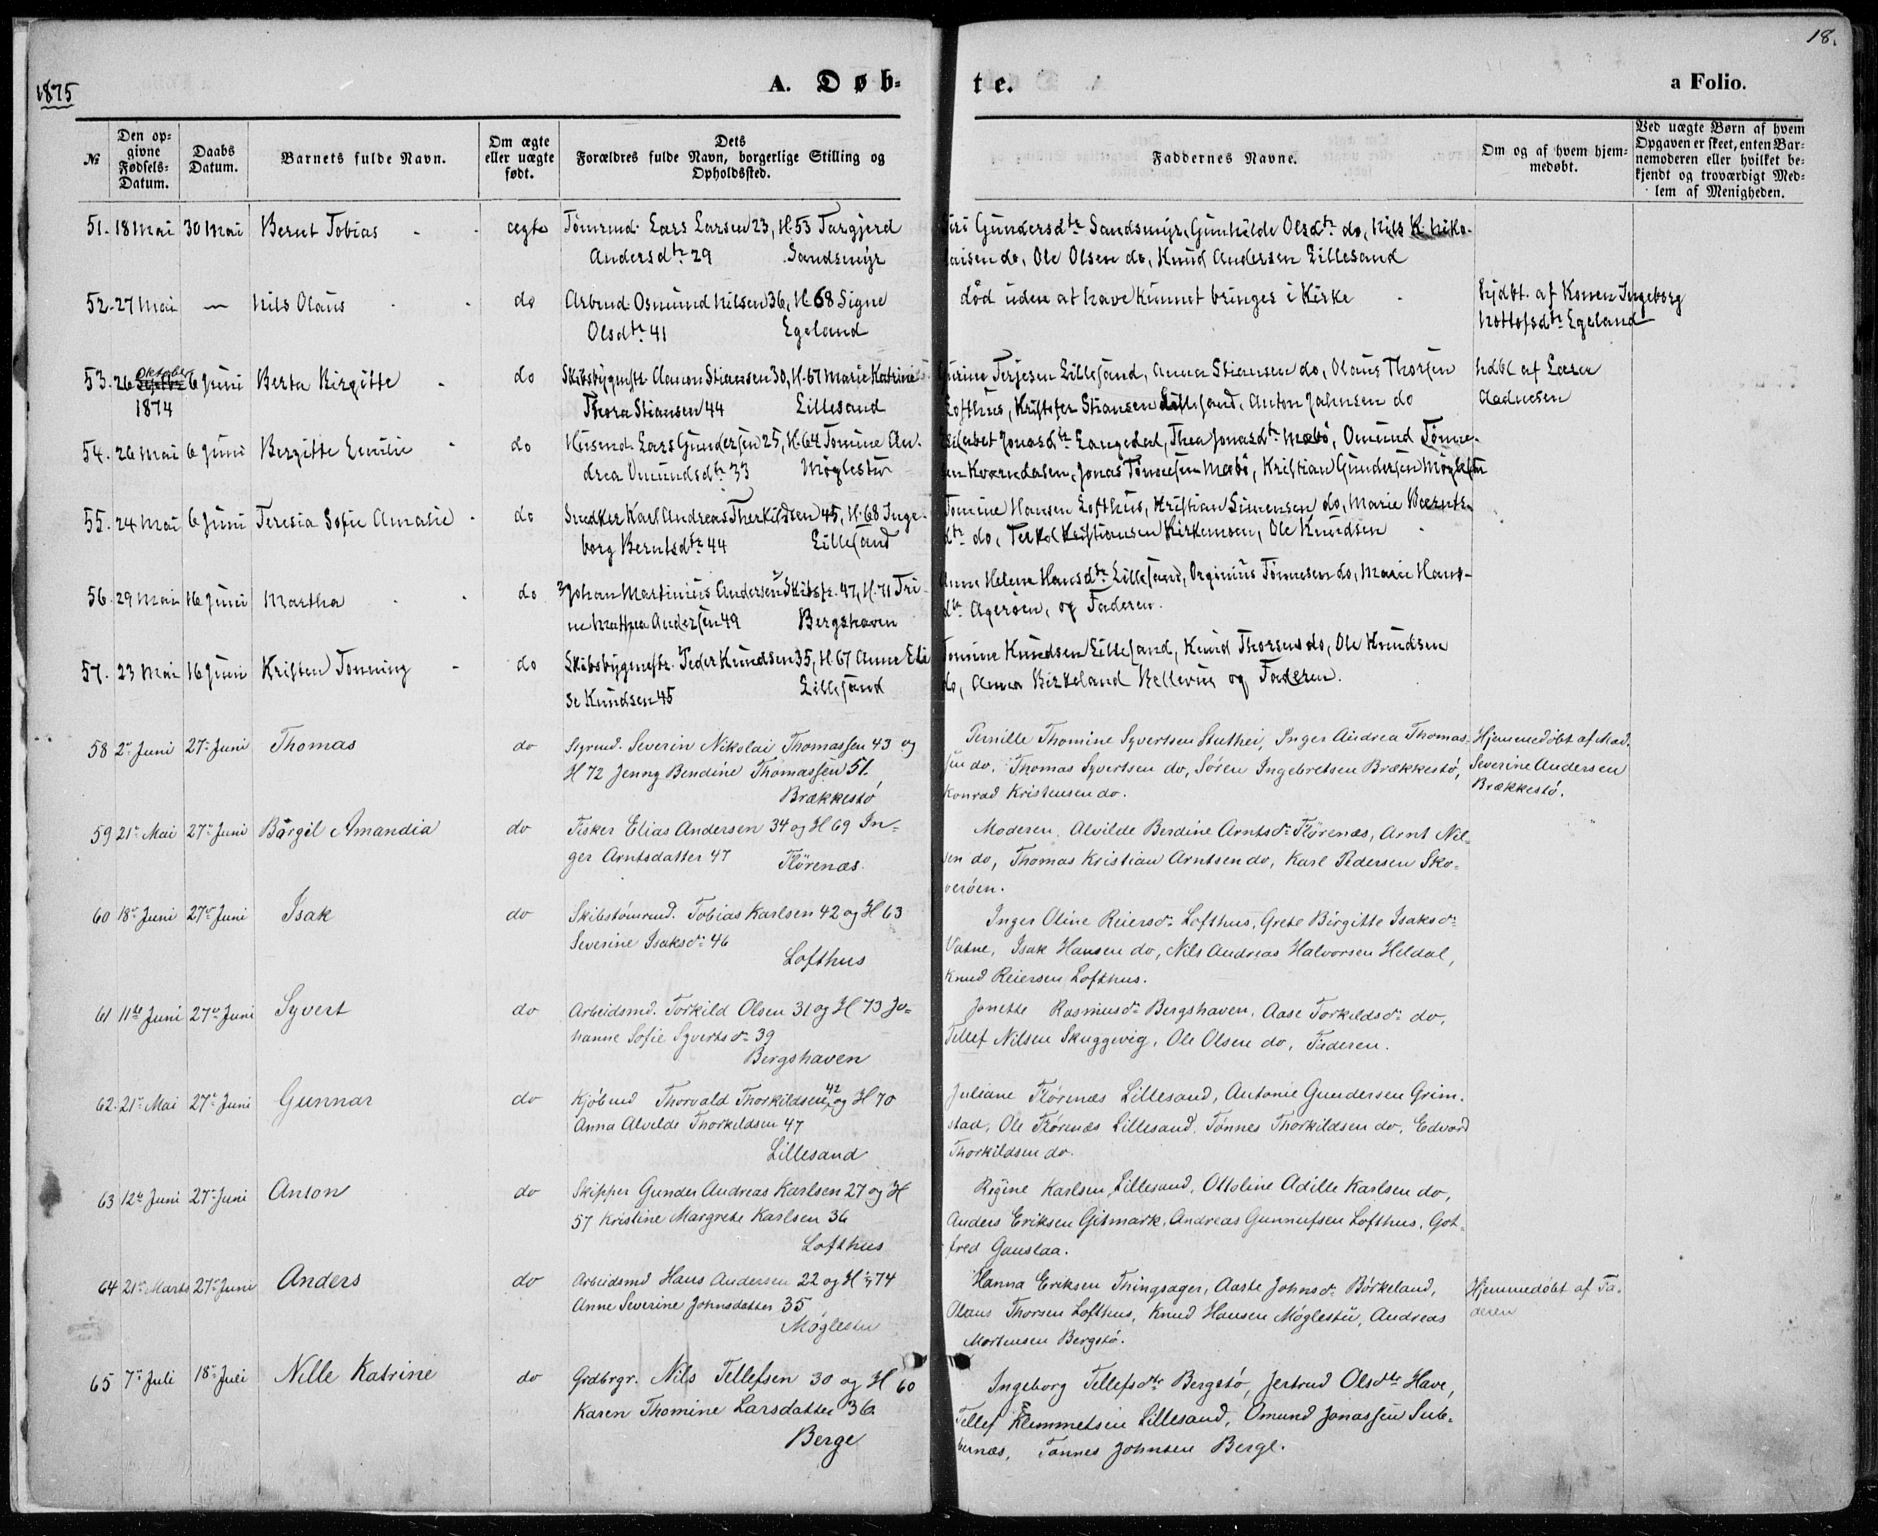 18.
1875
A. Døb-
te.
a Folio.
№
Den op-
givne
Fødsels-
Datum.
Daabs
Datum.
Barnets fulde Navn.
Om ægte
eller uægte
født.
Dets
Forældres fulde Navn, borgerlige Stilling og
Opholdssted.
Faddernes Navne.
Om og af hvem hjem-
medøbt.
Ved uægte Børn af hvem
Opgaven er skeet, enten Bar-
nemoderen eller hvilket be-
kjendt og troværdigt Med-
lem af Menigheden.
51. 18 Mai 30 Mai Bernt Tobias - - ægte Tømrmd. Lars Larsen 23, H. 53 Targjerd
Andersdtr 29 Sandsmyr
Siri Gundersdtr Sandsmyr, Gunhilde Olsdtr do, Nils K. Niko-
laisen do, Ole Olsen do, Knud Andersen Lillesand
52. 27 Mai — Nils Olaus - - do Arbmd. Osmund Nilsen 36, H. 68 Signe
Olsdtr 41 Egeland
død uden at have kunnet bringes i Kirke -
hjdbt. af Konen Ingeborg
Notlofsdtr Egeland
53. 26 Oktober 6 Juni Berta Birgitte - do Skibsbygmstr. Aanon Stiansen 30, H. 67 Marie Katrine
1874
Thora Stiansen 44 Lillesand
Gurine Terjesen Lillesand, Anna Stiansen do, Olaus Thorsen
Lofthus, Kristofer Stiansen Lillesand, Anton Jahnsen do
hdbt af Lærer
Aadnesen
54. 26 Mai 6 Juni Bergitte Emilie - do Husmd. Lars Gundersen 25, H. 64 Tomine An-
drea Omundsdtr 33 Møglestu
Elisabet Jonasdtr Langedal, Thea Jonasdtr Mæbø, Omund Tønne-
sen Kværndalen, Jonas Tønnesen Mæbø, Kristian Gundersen Møglestu
55. 24 Mai 6 Juni Teresia Sofie Amalie - do Snedker Karl Andreas Therkildsen 45, H. 68 Inge-
borg Berntsdtr 44 Lillesand
Tomine Hansen Lofthus, Kristian Simensen do, Marie Beernts-
dtr do, Terkel Kristiansen Kirkemoen, Ole Knudsen -
56. 29 Mai 16 Juni Martha - - do Johan Martinius Andersen Skibstr. 47, H. 71 Tri-
ne Mathea Andersen 49 Bergshaven
Anne Helene Hansdtr Lillesand, Orginius Tønnesen do, Marie Hans-
dtr Agerøen, og Faderen.
57. 23 Mai 16 Juni Kristen Tonning - do Skibsbygmestr. Peder Knudsen 35, H. 67 Anne Eli
se Knudsen 45 Lillesand
Tomine Knudsen Lillesand, Knud Thorsen do, Ole Knudsen
do, Anna Birkeland Bellevue og Faderen.
58 2den Juni 27de Juni Thomas do Styrmd. Severin Nikolai Thomassen 43 og
H 72 Jenny Bendine Thomassen 51.
Brækkestø
Pernille Thomine Syvertsen Stuthei, Inger Andrea Thomas-
sen do, Thomas Syvertsen do, Søren Ingebretsen Brækkestø,
Konrad Kristensen do.
Hjemmedøbt af Mad.
Severine Andersen
Brækkestø.
59 21de Mai 27de Juni Børgil Amandia do Fisker Elias Andersen 34 og H 69 In-
ger Arntsdatter 47 Flørenæs.
Moderen, Alvilde Berdine Arntsdr Flørenæs, Arnt Nil-
sen do, Thomas Kristian Arntsen do, Karl Pedersen Sko-
verøen.
60 18de Juni 27de Juni Isak do Skibstømrmd. Tobias Karlsen 42 og H 63
Severine Isaksdr 46
Lofthus
Inger Oline Reiersdr Lofthus, Grete Birgitte Isaksdr
Vatne, Isak Hansen do, Nils Andreas Halvorsen Heldal,
Knud Reiersen Lofthus.
61 11te Juni 27de Juni Syvert do Arbeidsmd. Torkild Olsen 31 og H 73 Jo-
hanne Sofie Syvertsdr 39
Bergshaven
Jonette Rasmusdr Bergshaven, Aase Torkildsdr do,
Tellef Nilsen Skuggevig, Ole Olsen do, Faderen.
62. 21de Mai 27de Juni Gunnar do Kjøbmd Thorvald Thorkildsen 42 og H 70
Anna Alvilde Thorkildsen 47
Lillesand
Juliane Flørenæs Lillesand, Antonie Gundersen Grim-
stad, Ole Flørenæs Lillesand, Tønnes Thorkildsen do, Edvard
Thorkildsen do.
63 12te Juni 27de Juni Anton do Skipper Gunder Andreas Karlsen 27 og H
57 Kristine Margrete Karlsen 36
Lofthus
Regine Karlsen, Lillesand, Ottoline Adille Karlsen do,
Anders Eriksen Gitmark, Andreas Gunnufsen Lofthus, Got-
fred Gauslaa.
64 21de Marts 27de Juni Anders do Arbeidsmd Hans Andersen 22 og H 74
Anne Severine Johnsdatter 35
Møglestu
Hanna Eriksen Thingsager, Aaste Johnsdr Børkeland,
Olaus Thorsen Lofthus, Knud Hansen Møglestu, Andreas
Mortensen Bergstø.
Hjemmedøbt af Fa-
deren
65 7de Juli 18de Juli Nille Katrine do Grdbrgr. Nils Tellefsen 30 og H 60
Karen Thomine Larsdatter 36
Berge
Ingeborg Tellefsdtr Bergstø, Jertrud Olsdtr Have,
Tellef Klemmetsen Lillesand, Omund Jonassen
Tønnes Johnsen Berge.